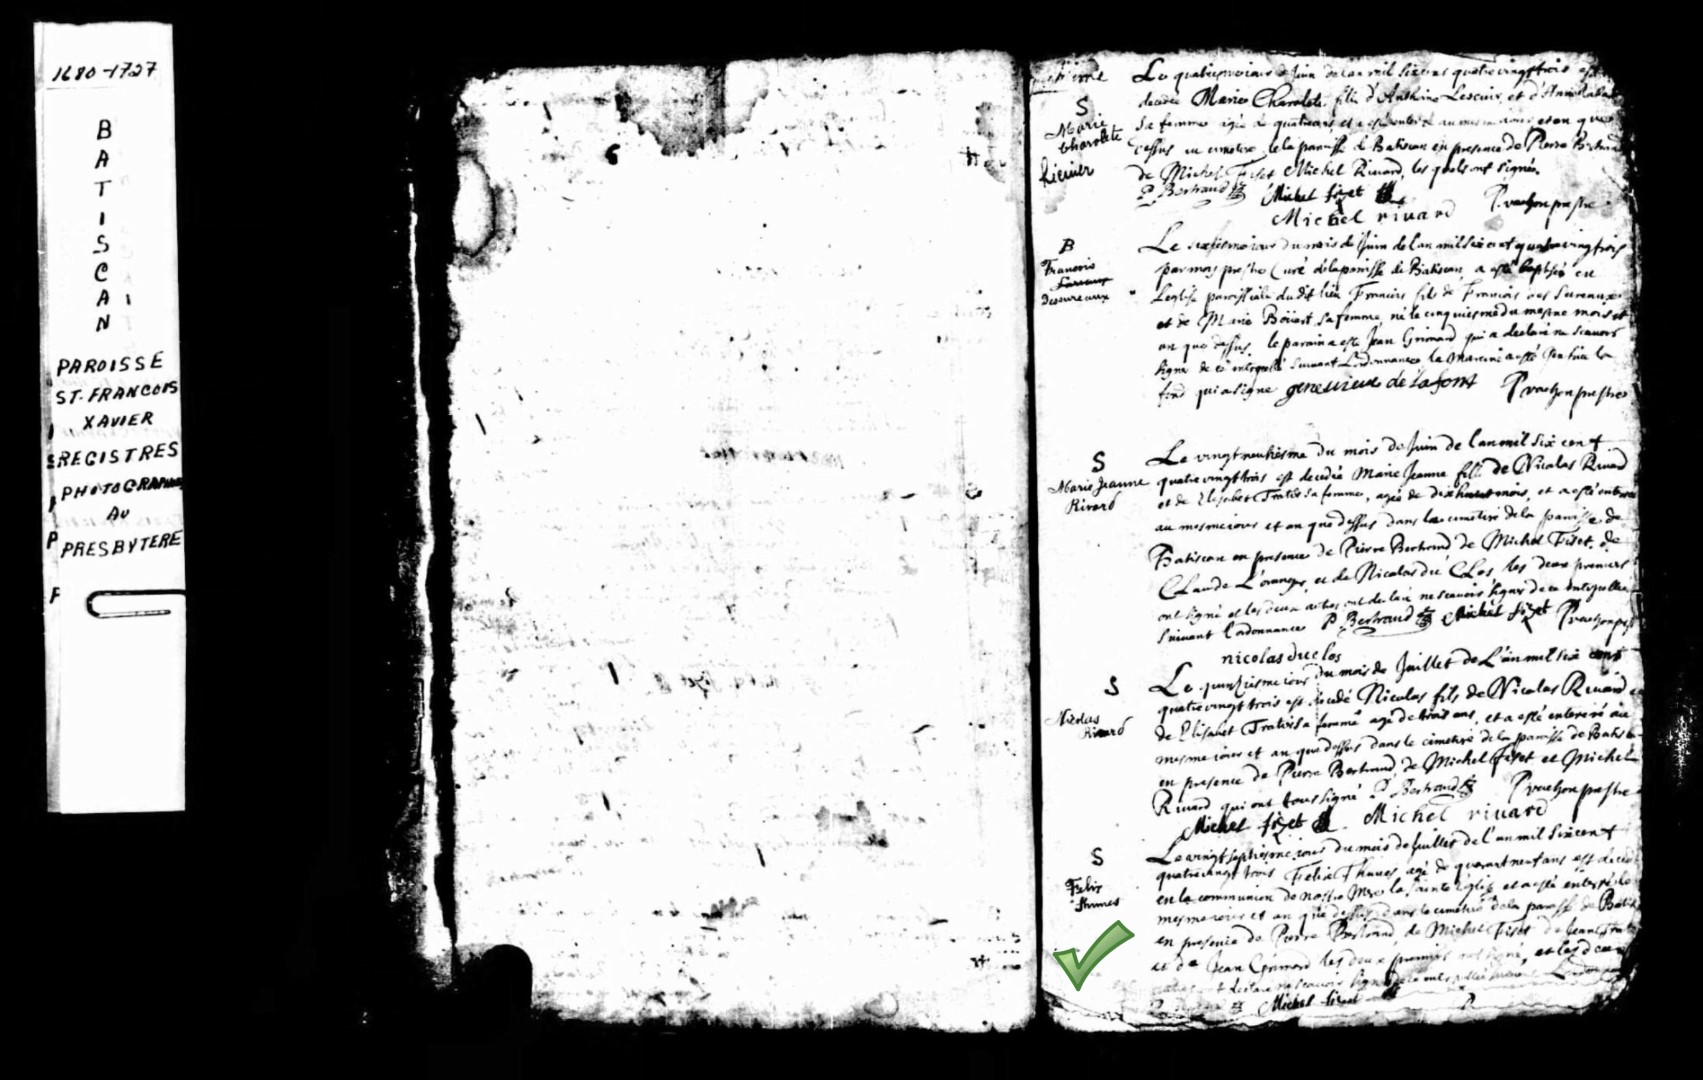 1680-1727
BATISCAN
PAROISSE
ST. FRANCOIS
XAVIER
REGISTRES
PHOTOGRAPHIES
AU
PRESBYTERE
S
Marie
Charolete
Le quatriesme iour de Juin de lan mil six cens quatre vingt trois est
decedée Marie Charolete fille d'Anthoine Lescuier et d'Anne Rabady
sa femme agée de quatre ans et a esté enterée au mesme iour et an que
dessus au cimetire de la paroisse de Batiscan en presence de Pierre Bertrand
de Michel Fiset Michel Rivard, les quels ont signé.
P. Bertrand Michel fizet P. vachon prestre
Michel rivard
B
Francois
Desureaux
Le sixiesme iour du mois de Juin de lan mil six cent quatre vingt trois
par moy prestre Curé de la paroisse de Batiscan, a esté baptisé en
Leglise paroissiale du dit lieu Francois fils de Francois des Sureaux
et de Marie Boüart sa femme né le cinquiesme du mesme mois et
an que dessus. le parain a esté Jean Grimard qui a declaré ne scauoir
signe de ce interpellé suiuant Lordonnance la maraine a esté Geneuieue la
fond qui a signe geneuieue de Lafont P vachon prestre
S
Marie Jeanne
Rivard
Le vingt neufiesme du mois de Juin de lan mil six cent
quatre vingt trois est decedée Marie Jeanne fille de Nicolas Rivard
et de Elisabet Trotié sa femme, agée de dix huit mois, et a esté enterée
au mesme iour et an que dessus dans le cimetire de la paroisse de
Batiscan en presence de Pierre Bertrand de Michel Fiset, de
Claude L'oranger, et de Nicolas du Clos les deux premiers
ont signé et les deux autres ont declaré ne scauoir signer de ce interpellez
suiuant lordonnance P. Bertrand Michel fizet P vachon prestre
nicolas duclos
S
Nicolas
Rivard
Le quinziesme iour du mois de Juillet de L'an mil six cent
quatre vingt trois est decedé Nicolas fils de Nicolas Rivard et
de Elisabet Trotié sa femme agé de trois ans, et a esté enterré au
mesme iour et an que dessus dans le cimetire de la paroisse de Batiscan
en presence de Pierre Bertrand de Michel Fiset et Michel
Rivard qui ont tous signé P. Bertrand P vachon prestre
Michel fizet Michel rivard
S
Felix
Thunes
Le vingt septiesme iour du mois de Juillet de l'an mil six cent
quatre vingt trois Felix Thunes agé de quarant neuf ans est decedé
en la communion de nostre Mere la Sainte Eglise et a esté enterré le
mesme iour et an que dessus dans le cimetire de la paroisse de Batiscan
en presence de Pierre Bertrand, de Michel Fiset de Jean
et de Jean Grimard les deux premiers ont signé, et les deux
ont declaré ne scauoir signer
Michel fizet